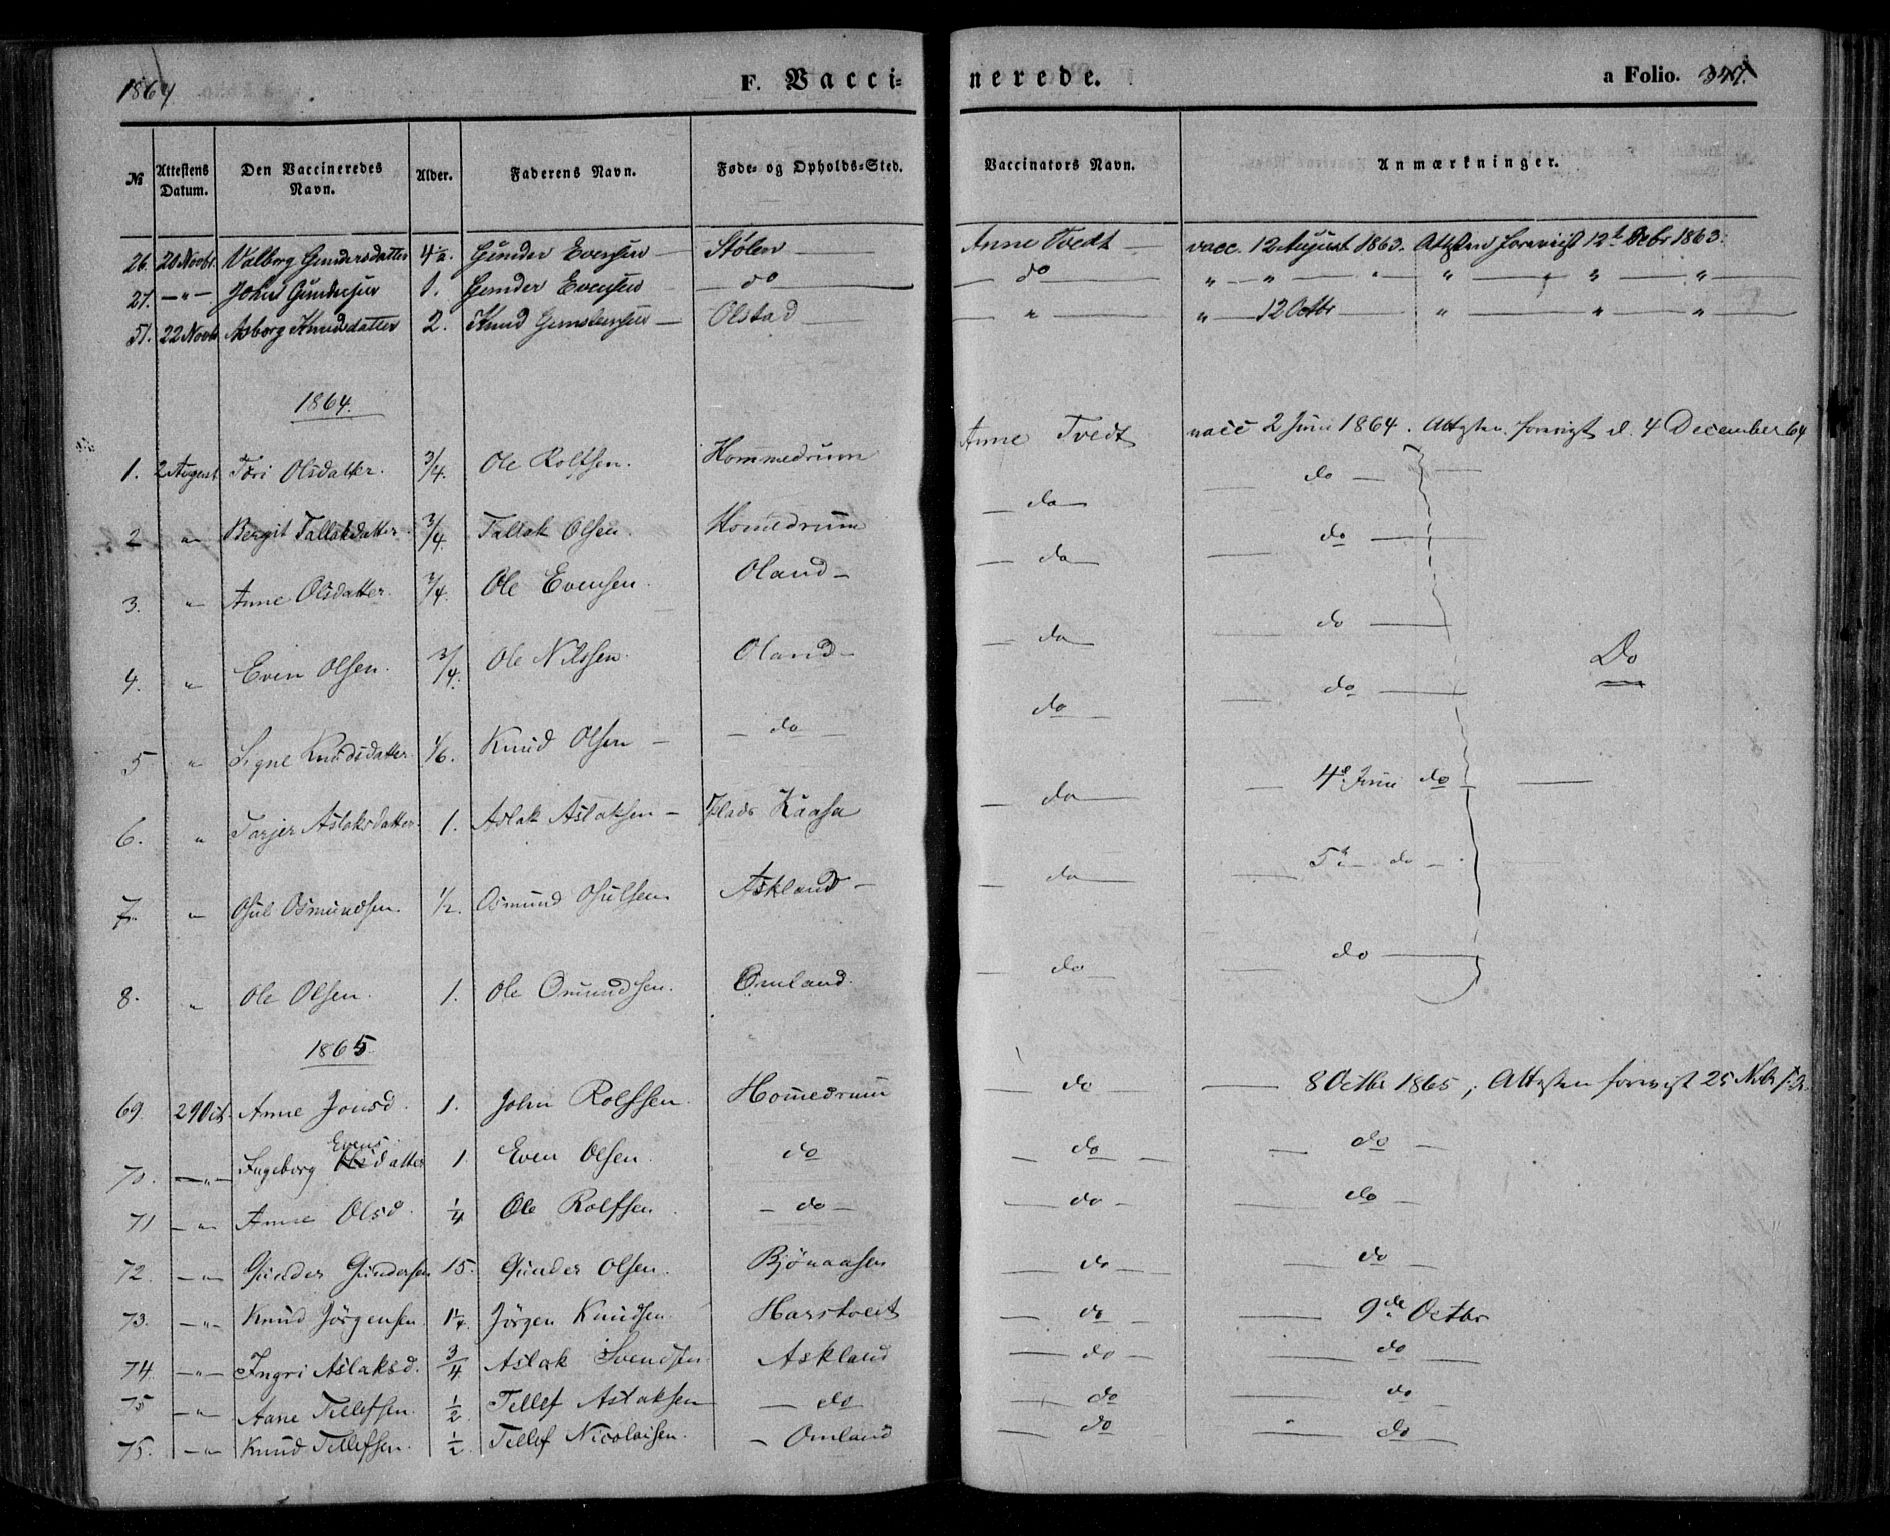 1864 F. Vaccinerede. a Folio. 347.
№ Attestens Datum. Den Vaccineredes Navn. Alder. Faderens Navn. Føde- og Opholds-Sted. Vaccinators Navn. Anmærkninger.
26. 20 Novbr Valborg Gundersdatter 4½. Gunder Evensen — Stølen — Anne Tvedt — vacc. 12 August 1863. Attesten forevist 12te Decbr 1863.
27. — " — John Gundersen 1. Gunder Evensen — do — do — " — " — " — " — "
51. 22 Novbr Asborg Knudsdatter 2. Knud — Olstad — " — " — 12 Octbr — " — " — "
1864.
1. 2 August Tori Olsdatter. 3/4. Ole Rolfsen. Hommedrum Anne Tvedt vacc 2 Juni 1864. Attesten forevist d. 4 December 64
2 " Bergit Tallaksdatter. 3/4. Tallak Olsen. Homedrum — do — — do —
3. " Anne Olsdatter. 3/4. Ole Evensen. Oland — — do — — do —
4. " Even Olsen. 3/4. Ole Nilssen. Oland — — do — — do — Do
5 " Signe Knudsdatter 1/6. Knud Olsen — — do — — do — — do —
6. " Tarjer Aslaksdatter. 1. Aslak Aslaksen — Kaasa — do — — 4de Juni do —
7. " Osul Osmundsen. 1/2. Osmund Osulsen. Askland — — do — — 5te — do —
8. " Ole Olsen. 1. Ole Omundsen. Omland. — do — — do —
1865
69. 29 Oct. Anne Jonsd. 1. John Rolfsen. Homedrum — do — 8 Octbr 1865; Attesten forevist 25 Novbr
70. — " — Ingeborg Evensdatter 1. Even Olsen. do — do — — do —
71 — " Anne Olsd. 1/4 Ole Rolfsen — do — — do — — do —
72. — " — Gunder Gundersen 15. Gunder Olsen. Bjønaasen — do — — do —
73. — " — Knud Jørgensen 1¼. Jørgen Knudsen. Harstveit — do — — 9de Octbr
74. — " — Ingri Aslaksd. 3/4 Aslak Svendsen. Askland — do — — do —
75 — " Aane Tellefsen. 1/2 Tellef Aslaksen — do — do — do
75. — " — Knud Tellefsen. 1/2 Tellef Nicolaisen. — Omland — do — do —